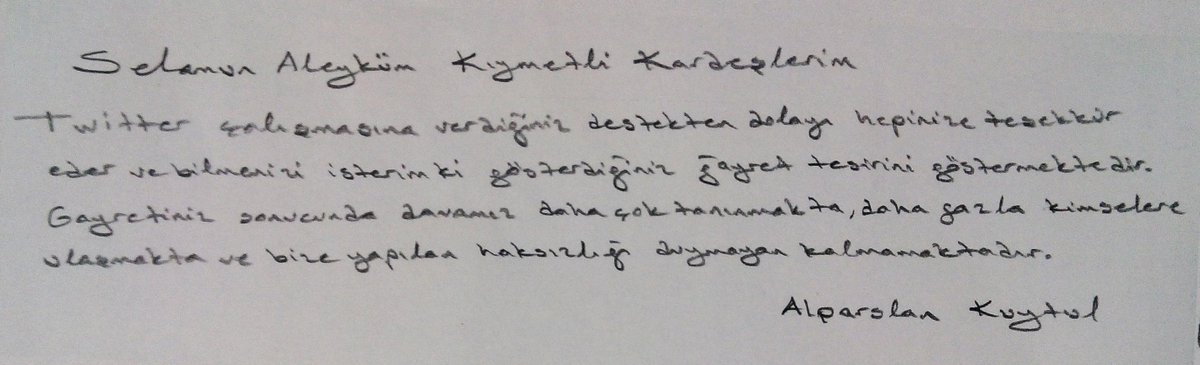 Selamun Aleyküm Kıymetli Kardeşlerim
Twitter çalışmasına verdiğiniz destekten dolayı hepinize teşekkür
eder ve bilmenizi isterim ki gösterdiğiniz ğayret tesirini göstermektedir.
Gayretiniz sonucunda davamız daha çok tanınmakta, daha fazla kimselere
ulaşmakta ve bize yapılan haksızlığı duymayan kalmamaktadır.
Alparslan Kuytul